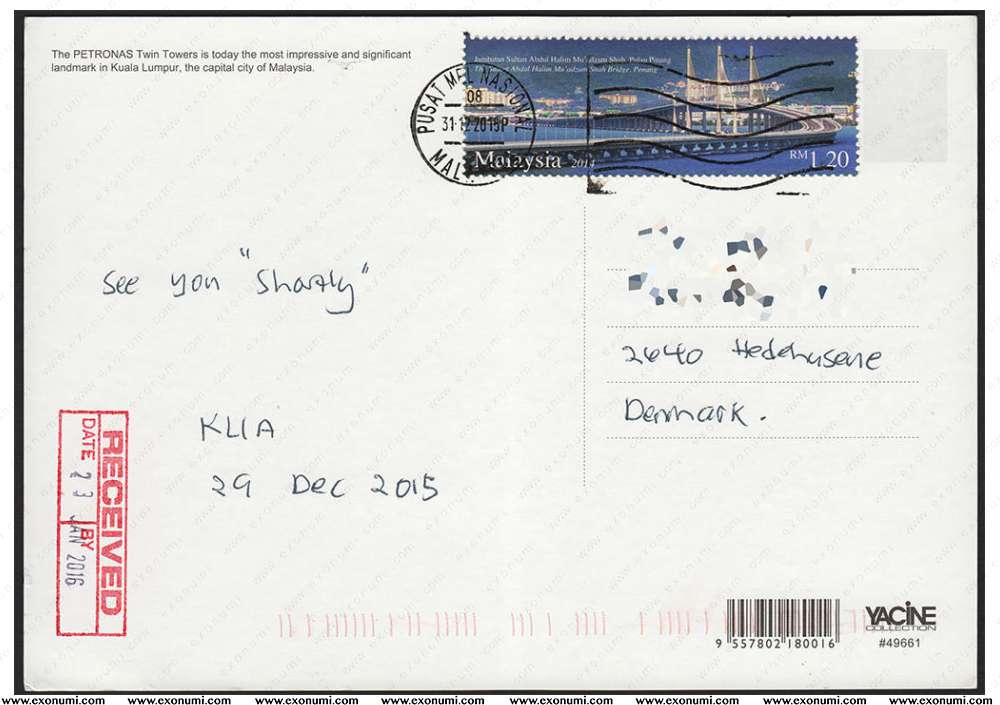 The PETRONAS Twin Towers is today the most impressive and significant
landmark in Kuala Lumpur, the capital city of Malaysia.
Jambatan Sultan Abdul Halim Mu'adzam Shah, Pulau Pinang
Abdul Halim Mu'adzam Shah Bridge, Penang
Malaysia 2014
RM1.20
PUSAT MEL NASIONAL
08
31-12-2015P
See you "Shortly"
KLIA
29 Dec 2015
2640 Hedehusene
Denmark.
RECEIVED
DATE
BY
23 JAN 2016
9 557802 180016
YACINE
COLLECTION
#49661
www.exonumi.com www.exonumi.com www.exonumi.com www.exonumi.com www.exonumi.com www.exonumi.com www.exonumi.com www.exonumi.com